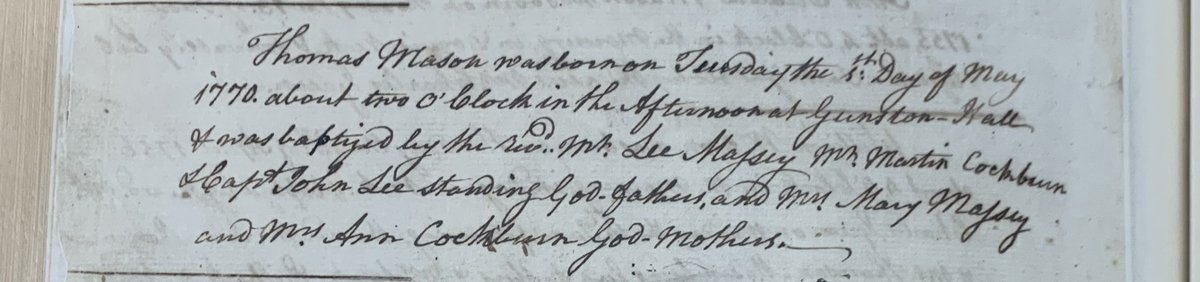 Thomas Mason was born on Tuesday the 1st. Day of May
1770. about two O'Clock in the Afternoon at Gunston-Hall
& was baptized by the revd. Mr. Lee Massey Mr. Martin Cockburn
& Capt. John Lee standing God-fathers, and Mrs. Mary Massey
and Mrs Ann Cockburn God-Mothers.